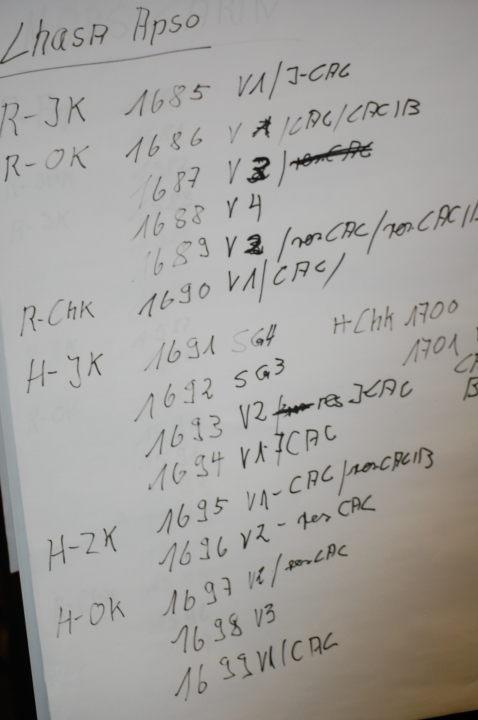 Lhasa Apso
R-JK 1685 V1/J-CAC
R-OK 1686 V1/CAC/CACIB
1687 V3/resCAC
1688 V4
1689 V2/resCAC/resCACIB
R-ChK 1690 V1/CAC/
H-JK 1691 SG4
H-Chk 1700
1692 SG3
1701
1693 V2 res JCAC
1694 V1 JCAC
H-ZK 1695 V1-CAC/resCACIB
1696 V2-res CAC
H-OK 1697 V2/resCAC
1698 V3
1699 V1/CAC